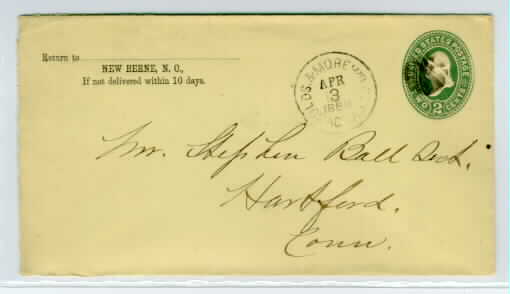 Return to
NEW BERNE, N. C.,
If not delivered within 10 days.
GOLDS. & MOREHD
APR
3
UNITED STATES POSTAGE
TWO 2 CENTS
Mr. Stephen Ball Sect.
Hartford.
Conn.